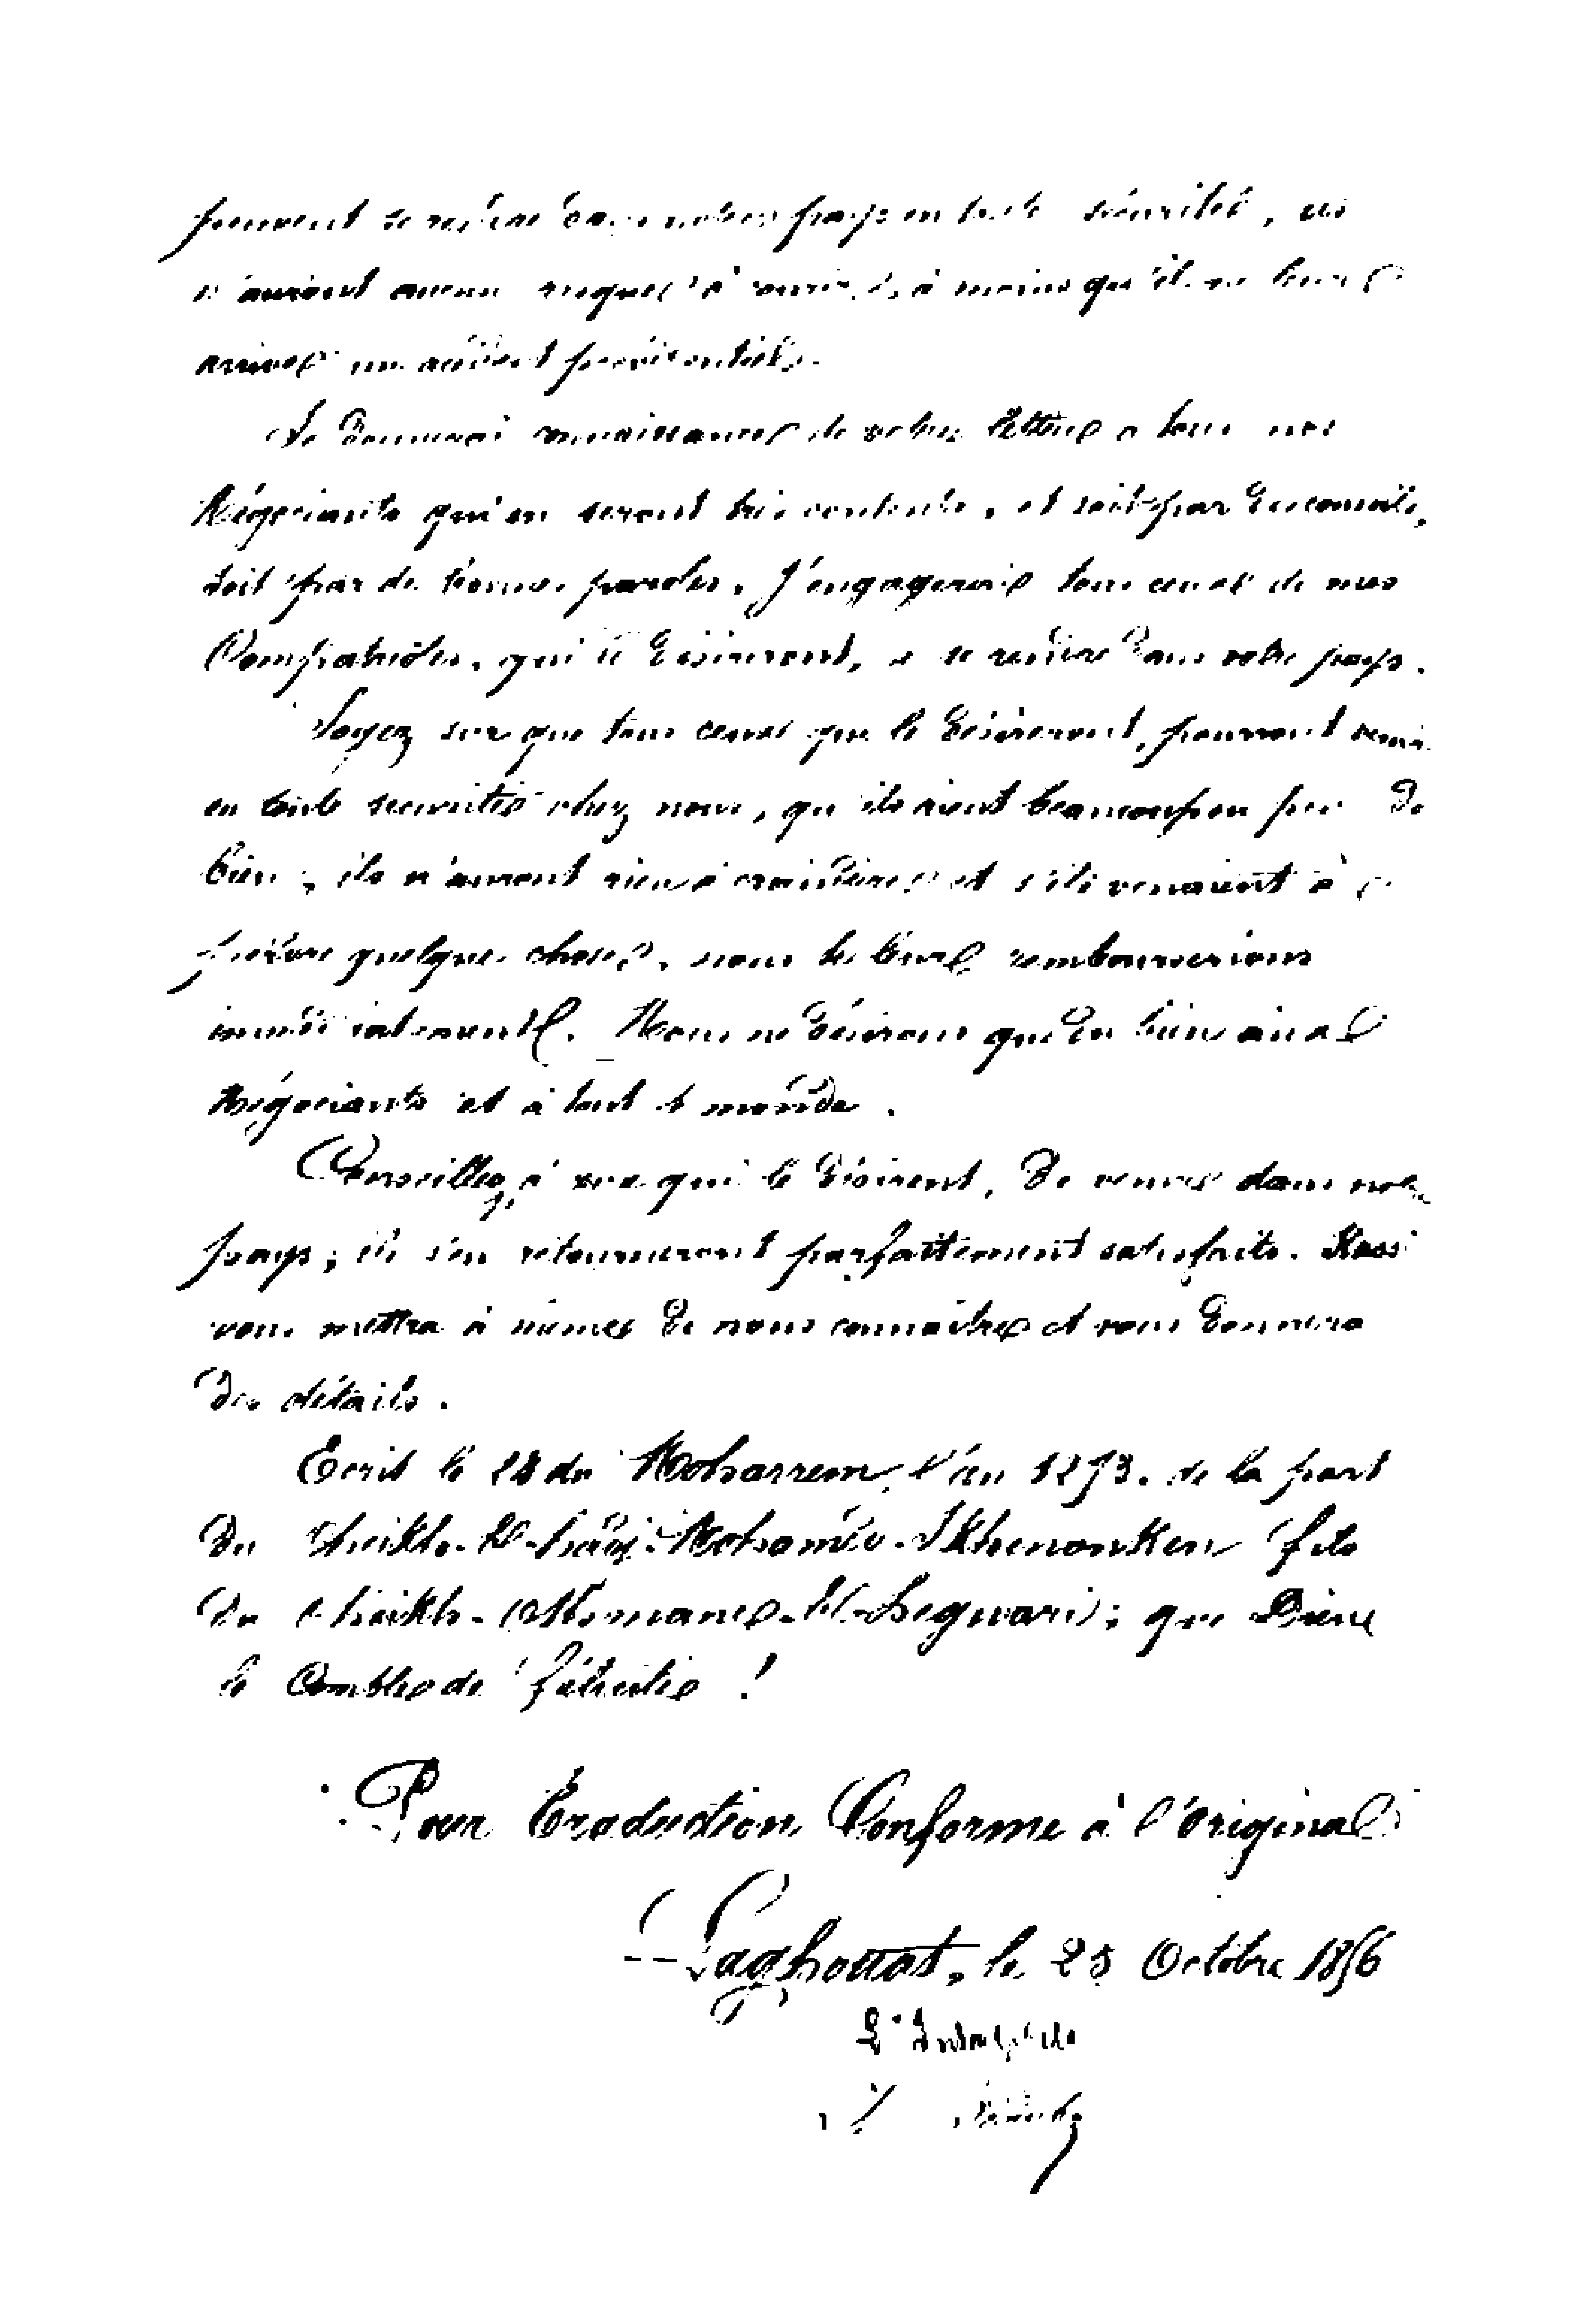 peuvent se rendre dans notre pays en toute sécurité, ils
n'auront aucun risque à courir, à moins qu'il ne leur
arrive un accident providentiel.
Je donnerai connaissance de votre lettre à tous nos
Négociants qui en seront très contents, et soit par
soit par de bonnes paroles, j'engagerai tous ceux de mes
Compatriotes, qui le désireront, à se rendre dans votre pays.
Soyez sur que tous ceux qui le désireront, pourront venir
en toute securité chez nous, qu'ils aient beaucoup ou peu de
bien, ils n'auront rien à craindre et s'ils venaient à
perdre quelque chose, nous le leur rembourserions
immédiatement. Nous ne désirons que du bien aux
Négociants et à tout le monde.
Conseillez à ceux qui le désirent, de venir dans notre
pays; ils s'en retourneront parfaitement satisfaits.
vous mettra à même de nous connaître et vous donnera
des détails.
Ecrit le 28 de Moharrem, l'an 1273. de la part
du Cheikh-El-hadj-Mohamed-Ikhenouken fils
du Cheikh-Othmane-El-; que Dieu
le Comble de félicité !
Pour Traduction Conforme à l'original
Laghouat, le 25 Octobre 1856
L'Interprète